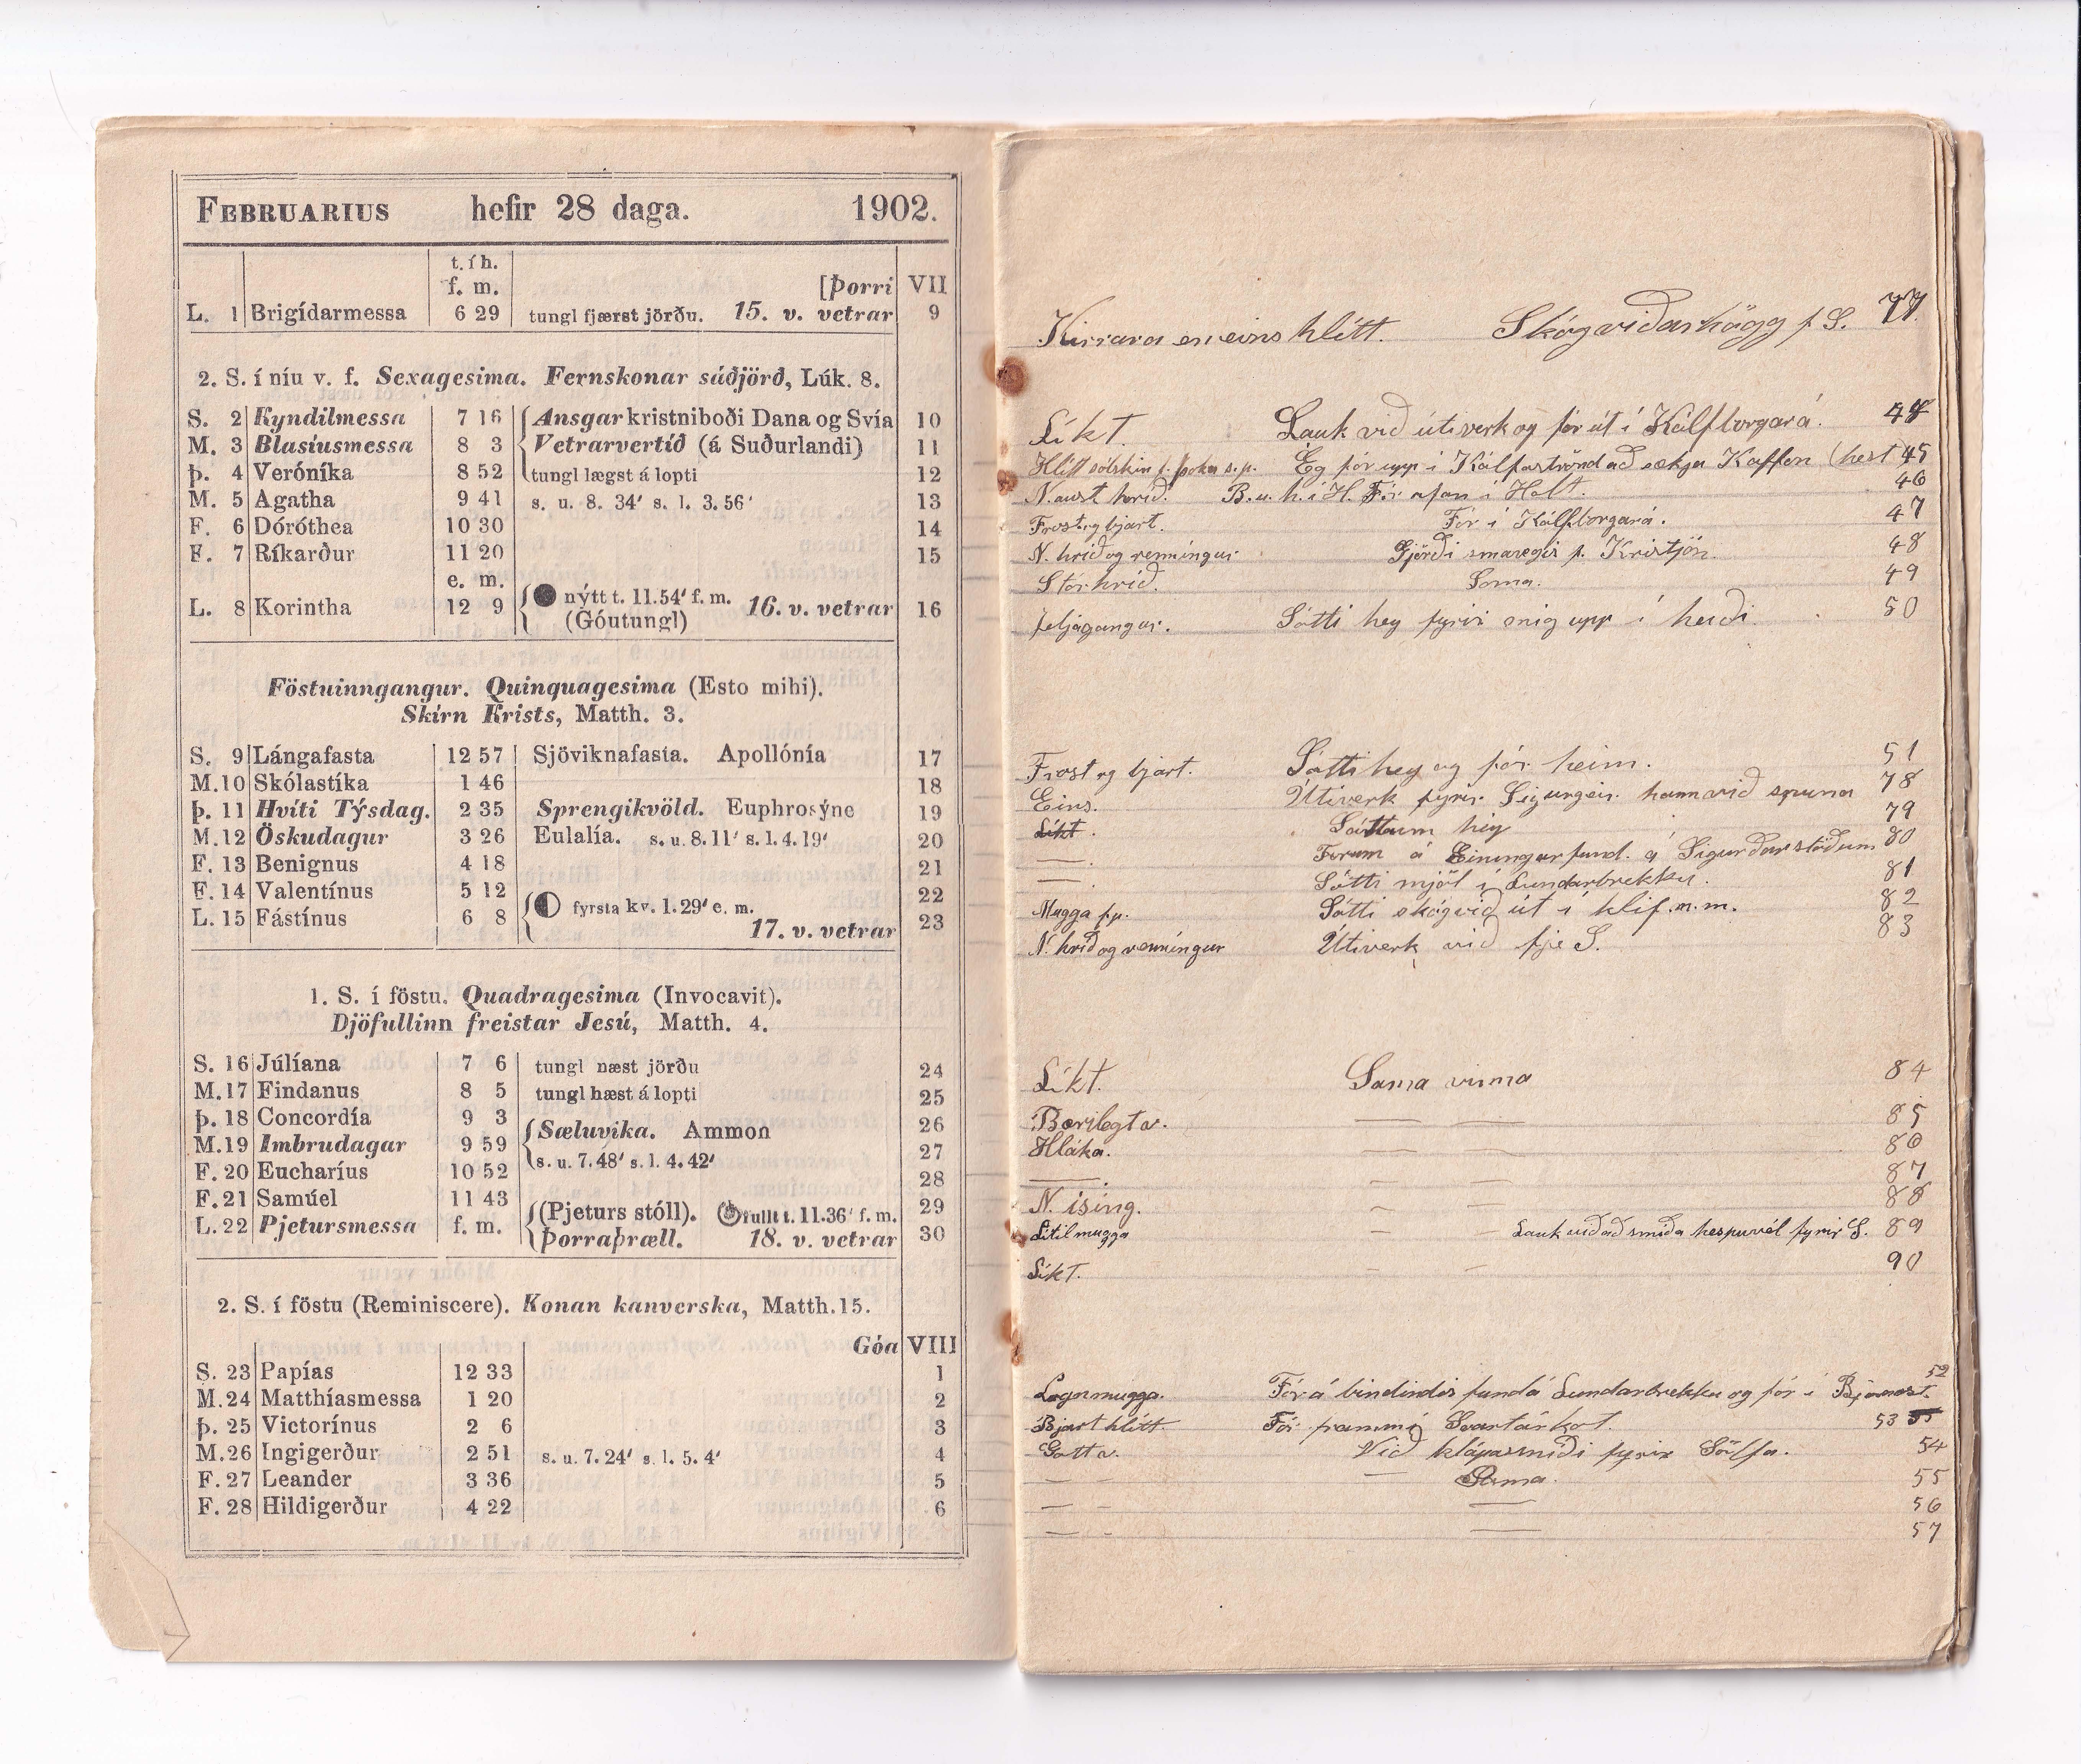 FEBRUARIUS hefir 28 daga. 1902.
t. í h.
f. m. [Þorri VII
L. 1 Brigídarmessa 6 29 tungl fjærst jörðu. 15. v. vetrar 9
2. S. í níu v. f. Sexagesima. Fernskonar sáðjörð, Lúk. 8.
S. 2 Kyndilmessa 7 16 Ansgar kristniboði Dana og Svía 10
M. 3 Blasíusmessa 8 3 Vetrarvertíð (á Suðurlandi) 11
Þ. 4 Verónika 8 52 tungl lægst á lopti 12
M. 5 Agatha 9 41 s. u. 8. 34' s. l. 3. 56' 13
F. 6 Dóróthea 10 30 14
F. 7 Ríkarður 11 20 15
e. m.
L. 8 Korintha 12 9 nýtt t. 11.54' f. m. 16. v. vetrar 16
(Góutungl)
Föstuinngangur. Quinquagesima (Esto mihi).
Skírn Krists, Matth. 3.
S. 9 Lángafasta 12 57 Sjöviknafasta. Apollónía 17
M. 10 Skólastíka 1 46 18
Þ. 11 Hvíti Týsdag. 2 35 Sprengikvöld. Euphrosýne 19
M. 12 Öskudagur 3 26 Eulalía. s. u. 8. 11' s. l. 4. 19' 20
F. 13 Benignus 4 18 21
F. 14 Valentínus 5 12 22
L. 15 Fástínus 6 8 fyrsta kv. 1. 29' e. m. 23
17. v. vetrar
1. S. í föstu. Quadragesima (Invocavit).
Djöfullinn freistar Jesú, Matth. 4.
S. 16 Júlíana 7 6 tungl næst jörðu 24
M. 17 Findanus 8 5 tungl hæst á lopti 25
Þ. 18 Concordía 9 3 Sæluvika. Ammon 26
M. 19 Imbrudagar 9 59 27
F. 20 Eucharíus 10 52 s. u. 7. 48' s. l. 4. 42' 28
F. 21 Samúel 11 43 (Pjeturs stóll). fullt t. 11.36' f. m. 29
L. 22 Pjetursmessa f. m. Þorraþræll. 18. v. vetrar 30
2. S. í föstu (Reminiscere). Konan kanverska, Matth. 15.
Góa VIII
S. 23 Papías 12 33 1
M. 24 Matthíasmessa 1 20 2
Þ. 25 Victorínus 2 6 3
M. 26 Ingigerður 2 51 s. u. 7. 24' s. l. 5. 4' 4
F. 27 Leander 3 36 5
F. 28 Hildigerður 4 22 6
Kirrara en eins hlítt. Skógviðarhögg f S. 77
Líkt. Lauk við útiverk og fór út í Kálfborgará.
Hlítt sólskin f. þoka s.p. Eg fór upp í Kálfaströnd að sækja Kaffon (hest 45
N. aust hríð. B. u. h. í H. Fór afan í Holt. 46
Frost og bjart. Fór í Kálfborgará. 47
N. hríð og renningur Gjörði smavegis f. Kristján. 48
Stórhríð. Sama. 49
Jeljagangur. Sótti hey fyrir mig upp í heiði. 50
Frost og bjart. Sótti hey og fór heim. 51
Eins. Útiverk fyrir Sigurgeir. hann við spuna 78
Líkt. Sóttum hey 79
— . Forum á Einingarfund. á Sigurðarstöðum 80
— . Sótti mjöl í Lundarbrekku. 81
Mugga f.p. Sótti skógvið út í klif. m. m. 82
N. hríð og renningur Útiverk við fje S. 83
Líkt. Sama vinna 84
Bærilegt v. — — 85
Hláka. — — 86
— . — — 87
N. ising. — — 88
Lítil mugga — — Lauk við að smíða hespuvél fyrir S. 89
Líkt. — — 90
Logn mugga. Fór á bindindis fund á Lundarbrekku og fór í Bjarnast. 52
Bjart hlítt. Fór frammí Svartárkot. 53
Gott v. Við klápasmíði fyrir Sölfa. 54
— — — Sama. 55
— — — 56
— — — 57